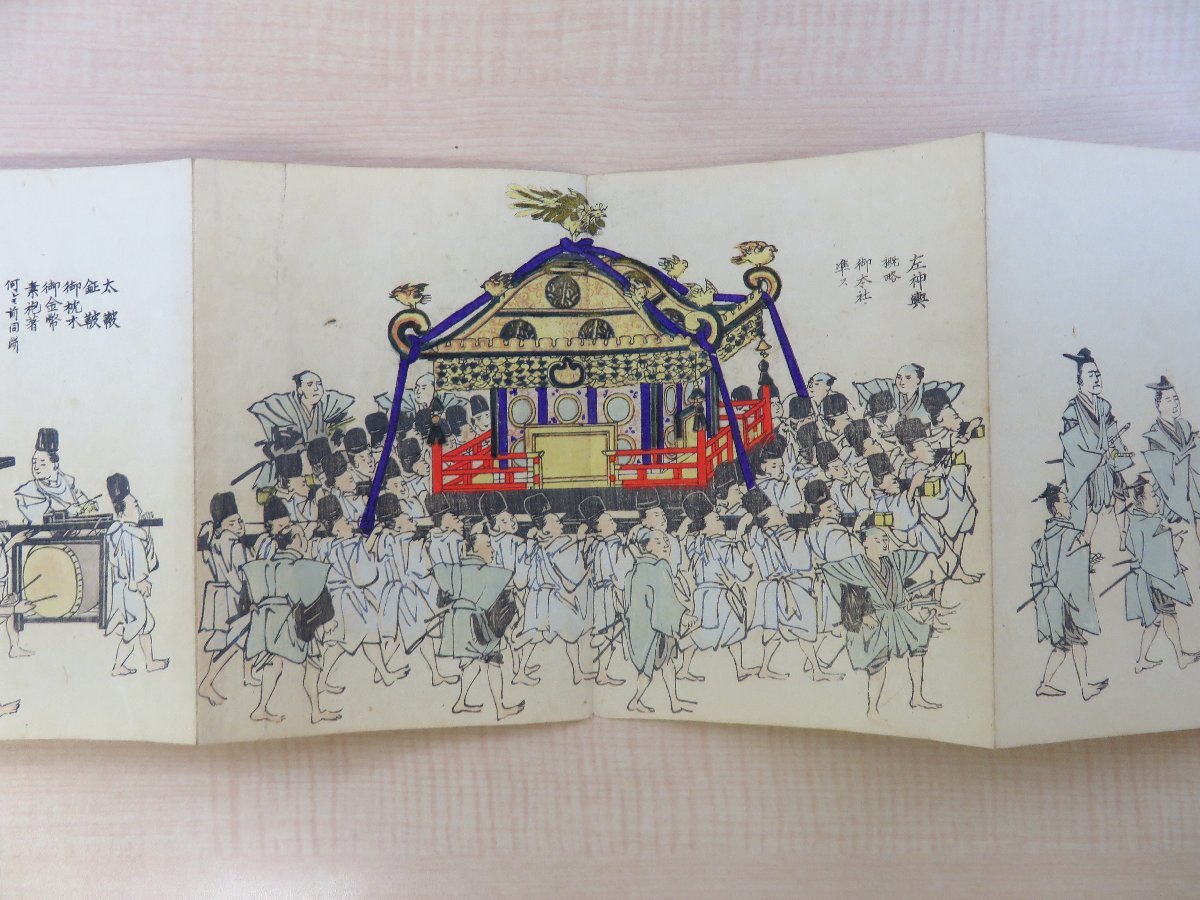 左神輿
概略
御本社
準ス
太鼓
鉦鼓
御枕木
御金幣
素袍著
何レモ前同断